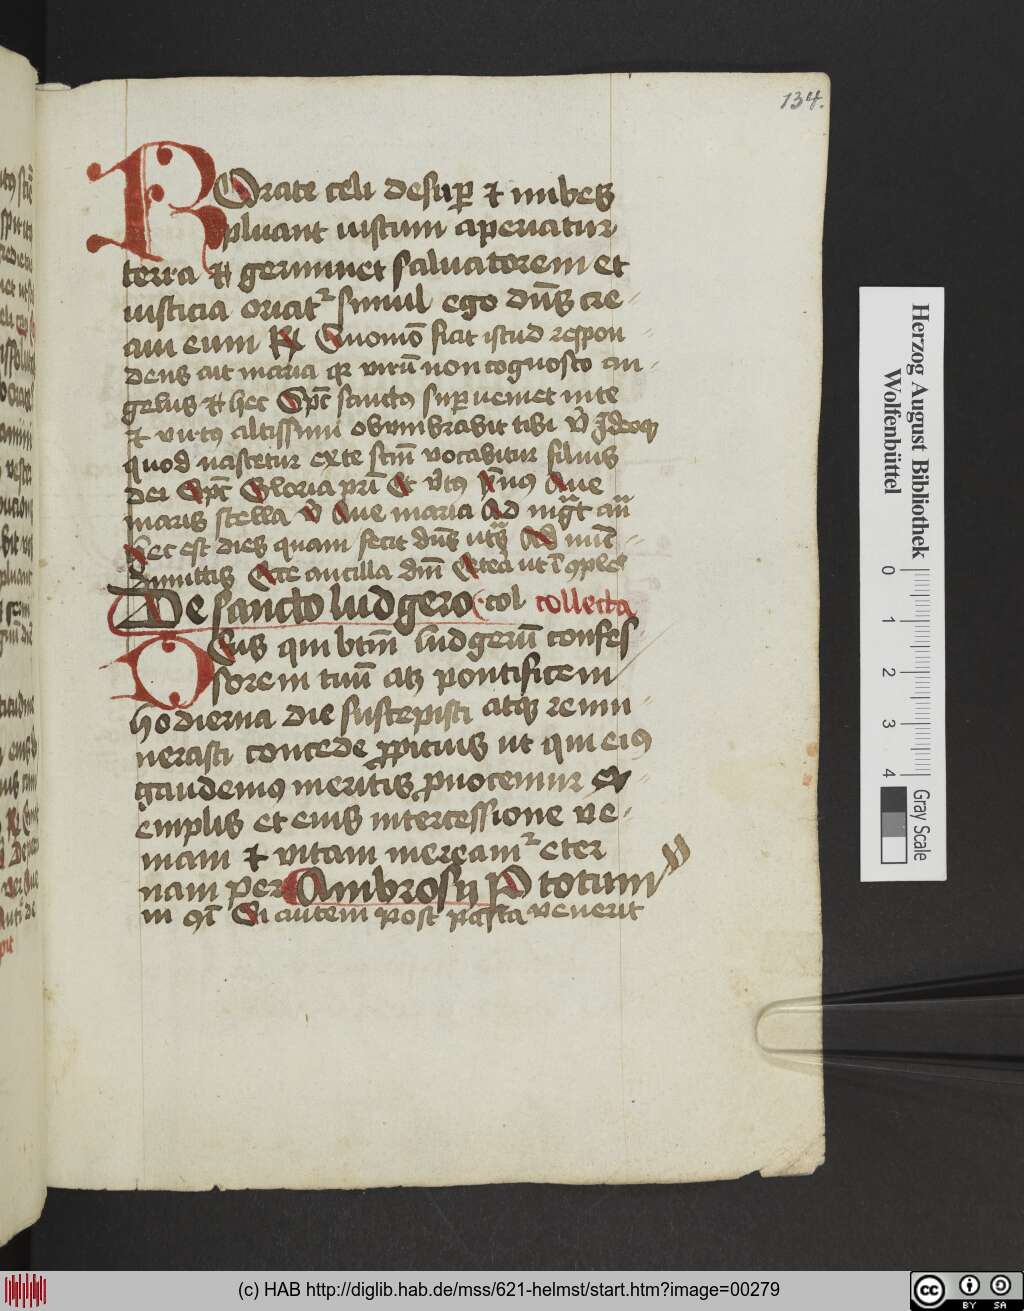 134.
ROrate celi desup̄ et nubes
pluant iustum aperiatur
terra et germinet saluatorem et
iusticia oriat᷑ simul ego dn̄s cre
aui eum R̷ Quomō fiet istud respon
dens ait maria qr virū non cognosco an
gelus et hec Sp̄c sanctus sup̄ueniet inte
et virtꝰ altissimi obumbrabit tibi V̓ Ideoqꝫ
quod nascetur exte sctm̄ vocabitur filius
dei Sp̄c Gloria pri Et v̓sꝰ ymnꝰ Aue
maris stella V̓ Aue maria Ad mg̅t an̄
hec est dies quam fecit dn̄s Ad
dimittis Ecce ancilla dm̄
De sancto ludgero col collecta
DEus qui btm̄ ludgerū confes
sorem tuū atqꝫ pontificem
hodierna die suscepisti atqꝫ remu
nerasti concede ꝓpicius ut qui eiꝰ
gaudemꝰ meritis ꝓuocemur ex
emplis et eius intercessione ve
niam et vitam mereamr᷑ eter
nam per Ambrosij totum
in Si autem post pasca venerit
Herzog August Bibliothek
Wolfenbüttel
0 1 2 3 4
Gray Scale
(c) HAB http://diglib.hab.de/mss/621-helmst/start.htm?image=00279
cc BY SA